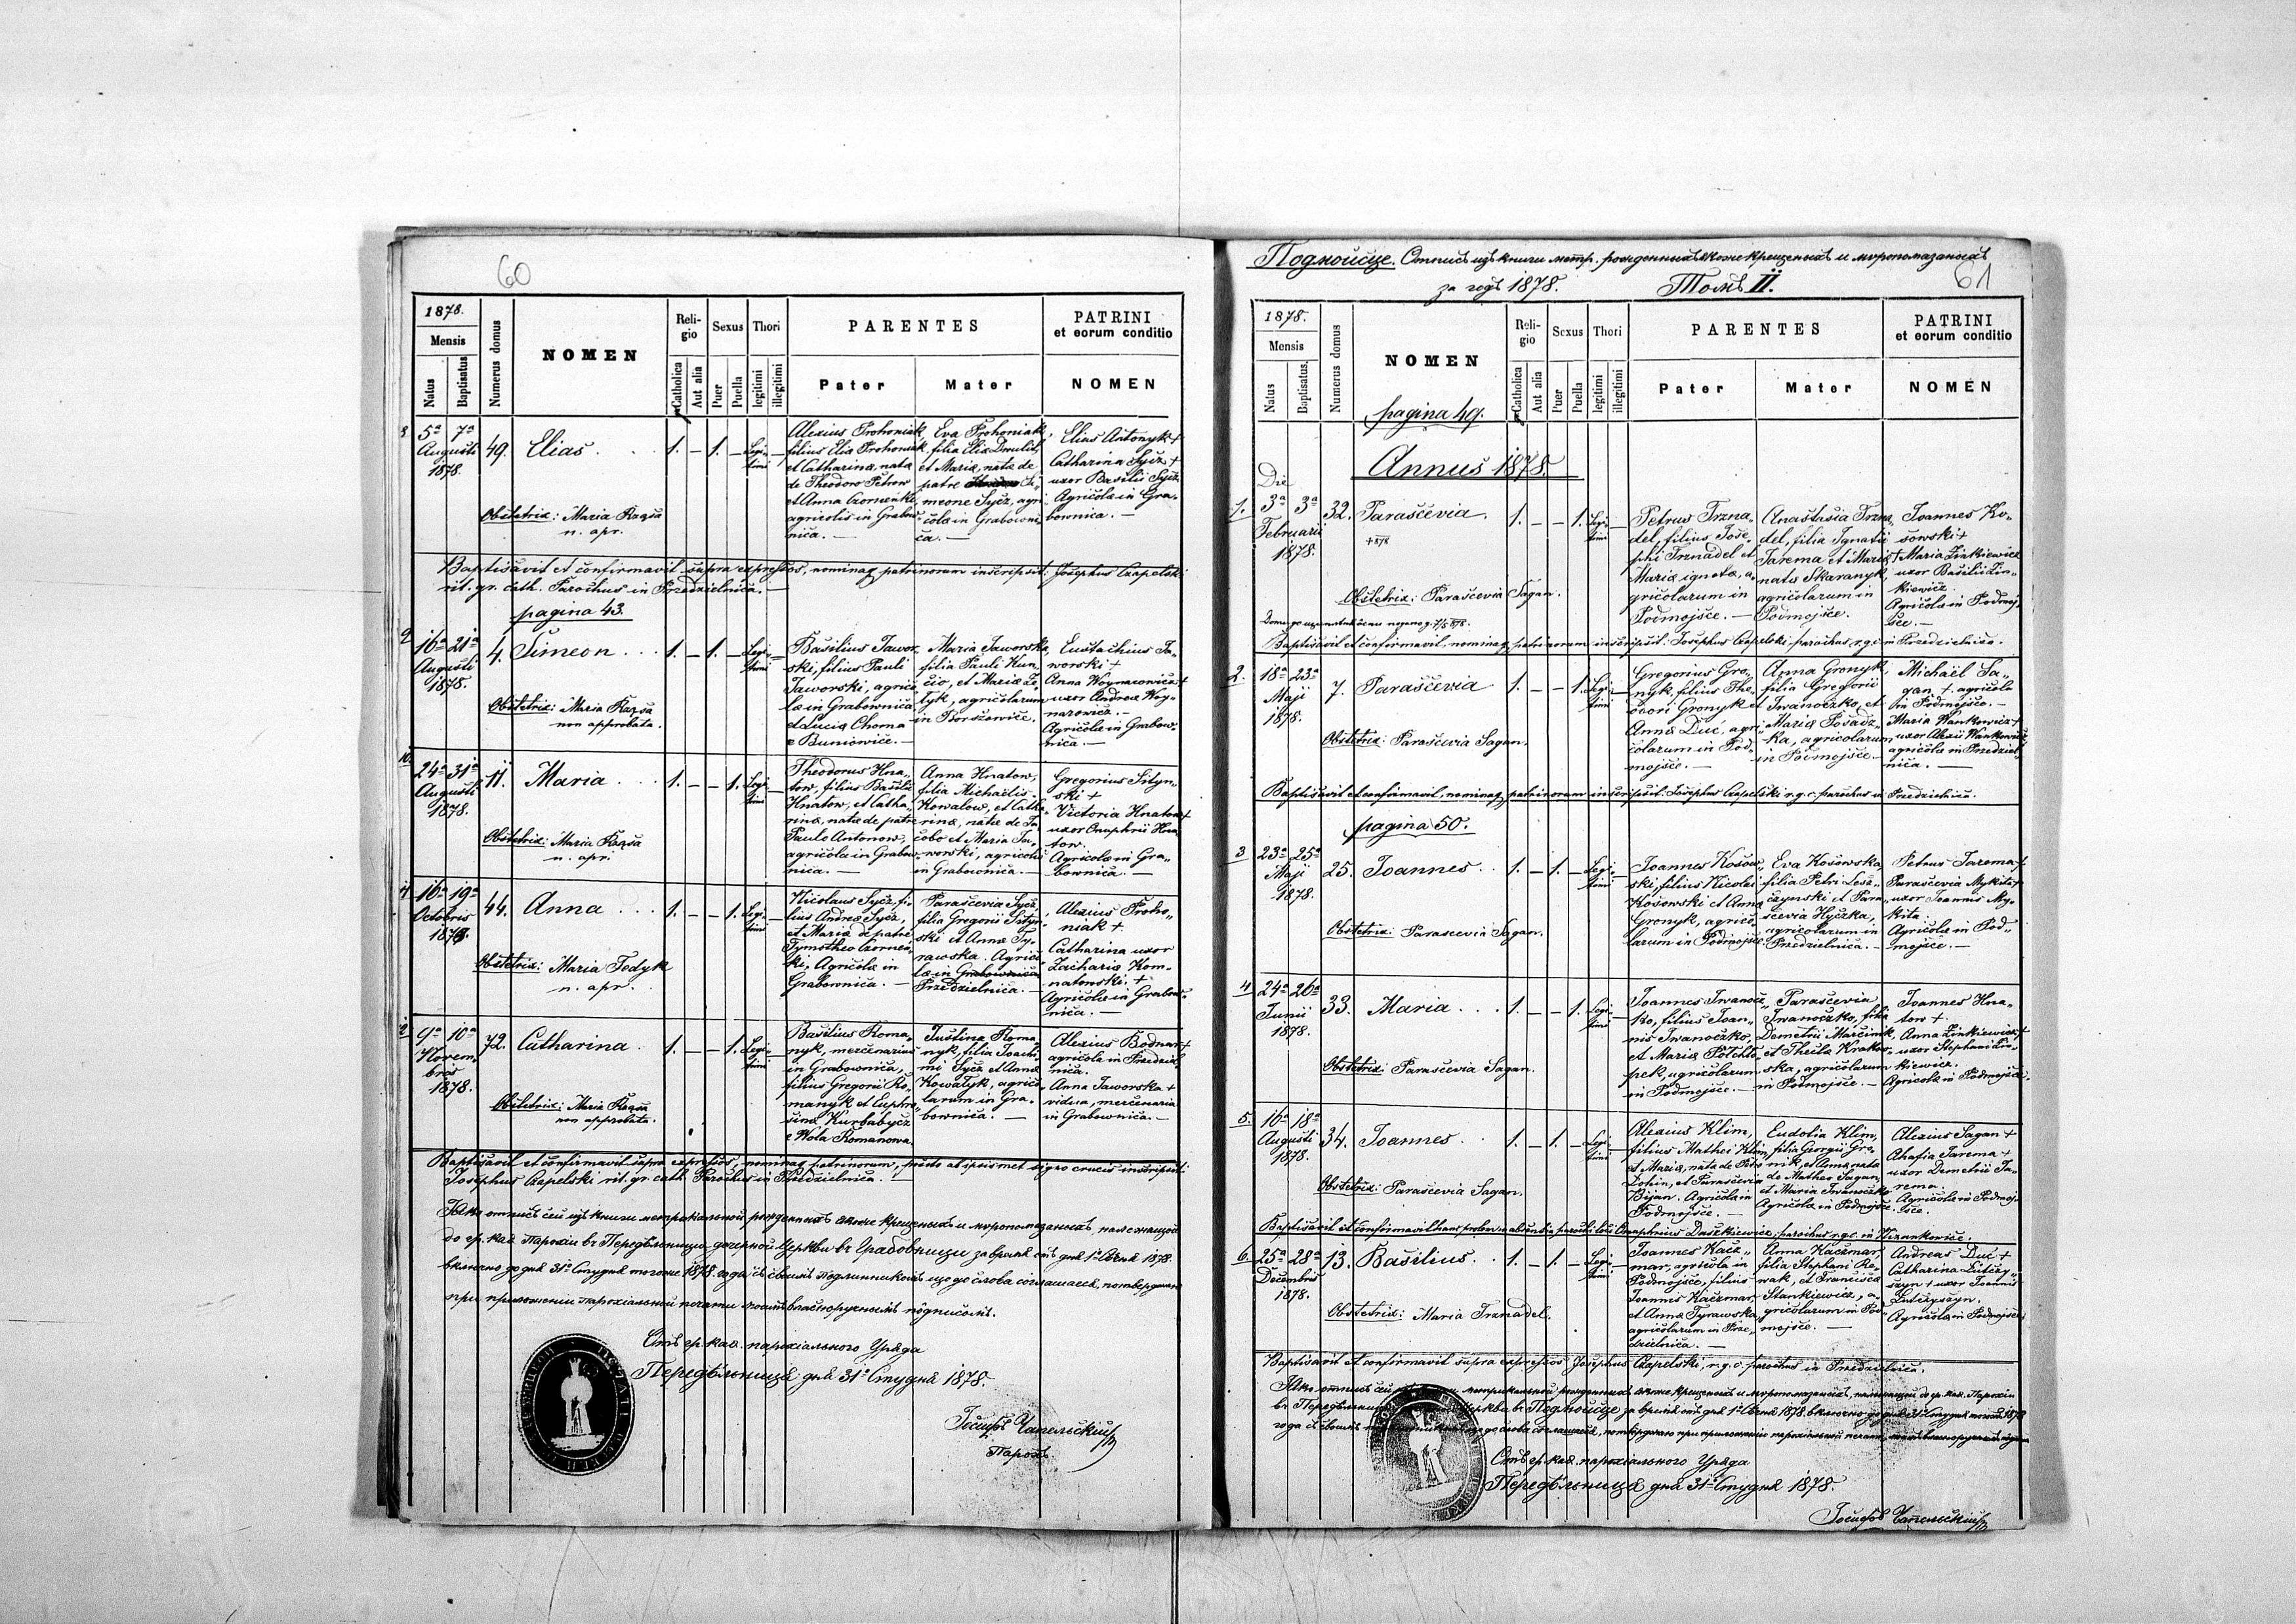 60
1878.
Mensis
Natus
Baptisatus
Numerus domus
NOMEN
Reli-
gio
Catholica
Aut alia
Sexus
Puer
Puella
Thori
legitimi
illegitimi
PARENTES
Pater
Mater
PATRINI
et eorum conditio
NOMEN
5a 7a
Augusti
1878.
49.
Elias
1. — 1. — Legi-
timi —
Obstetrix: Maria Kasza
n. apr.
Alexius Prohoniak,
filius Eliæ Prohoniak
et Catharinæ, natæ
de Theodoro Petrow
et Anna Czornenki
agricolis in Grabow-
nica. —
Eva Prohoniak,
filia Eliæ Dmulit,
et Mariæ, natæ de
patre Si-
meone Sycz, agri-
colæ in Grabowni-
ca. —
Elias Antonyk +
Catharina Sycz +
uxor Basilii Sycz
Agricolæ in Gra-
bownica. —
Baptisavit et confirmavit supra expressos, nominaq patrinorum inscripsit: Josephus Czapelski
rit. gr. cath. Parochus in Przedzielnica. —
pagina 43.
9 16a 21a
Augusti
1878.
4.
Simeon
1. — 1. — Legi-
timi —
Obstetrix: Maria Kasza
non approbata.
Basilius Jawor-
ski, filius Pauli
Jaworski, agrico-
læ in Grabownica
et Lucia Chorna
e Buniowice. —
Maria Jaworska,
filia Pauli Kun-
cio, et Mariæ Ze-
tyk, agricolarum
in Borszowice.
Eustachius Ja-
worski +
Anna Woynarowicz +
uxor Andreæ Woy-
narowicz. —
Agricolæ in Grabow-
nica. —
10. 24a 31a
Augusti
1878.
11.
Maria
1. — — 1. Legi-
timi
Obstetrix: Maria Kaszsa
n. apr.
Theodorus Hna-
tow, filius Basilii
Hnatow, et Catha-
rinæ, natæ de patre
Paulo Antonow,
agricola in Grabow-
nica. —
Anna Hnatow,
filia Michaëlis
Kowalow, et Catha-
rinæ, natæ de Ja-
cobo et Maria Ja-
worski, agricolis
in Grabownica. —
Gregorius Sityn-
ski +
Victoria Hnatow +
uxor Onuphrii Hna-
tow.
Agricolæ in Gra-
bownica. —
16a 19a
Octobris
1878.
44.
Anna
1. — — 1. Legi-
timi —
Obstetrix: Maria Fedyk
n. apr.
Nicolaus Sycz, fi-
lius Andreæ Sycz,
et Mariæ de patre
Tymotheo Czornen-
ki, Agricolæ in
Grabownica. —
Parascevia Sycz,
filia Gregorii Sityn-
ski et Annæ Ty-
rawska. Agrico-
læ in Grabownica
Przedzielnica. —
Alexius Proho-
niak +
Catharina uxor
Zachariæ Kom-
natowski. +
Agricolæ in Grabow-
nica. —
9a 10a
Novem-
bris
1878.
72.
Catharina
1. — — 1. Legi-
timi
Obstetrix: Maria Kaszsa
non approbata.
Basilius Roma-
nyk, mercenarius
in Grabownica,
filius Gregorii Ro-
manyk et Euphro-
sinæ Kurbabycz
e Wola Romanowa.
Justina Roma-
nyk, filia Joachi-
mi Sycz et Annæ
Kowalyk, agrico-
larum in Gra-
bownica. —
Alexius Bodnar +
agricola in Przedziel-
nica.
Anna Jaworska +
vidua, mercenaria
in Grabownica. —
Baptisavit et confirmavit supra expressos, nominaq patrinorum, pręto at ipsismet signo crucis inscripsit:
Josephus Czapelski rit. gr. cath. Parochus in Przedzielnica. —
Яко отписъ сей изъ книги метрикальной рожденныхъ якоже крещеныхъ и мѵропомазаныхъ належащой
до гр. каѳ. Парохіи въ Передѣльници дочерной Церкви въ Грабовници за время отъ дня 1го Січня 1878.
включно до дня 31го Студня тогоже 1878. года съ своимъ подлинникомъ що до слова соглашаеся, потверджаю
при приложеніи парохіальной печати моимъ власноручнымъ подписомъ.
Отъ гр. каѳ. парохіального Уряда
Передѣльниця дня 31го Студня 1878.
Іосифъ Чапельскій
Парохъ
Подмойсце. Отписъ изъ книги метр. рожденныхъ якоже крещеныхъ и мѵропомазаныхъ
за годъ 1878. Томъ II.
61
1878.
Mensis
Natus
Baptisatus
Numerus domus
NOMEN
pagina 49.
Reli-
gio
Catholica
Aut alia
Sexus
Puer
Puella
Thori
legitimi
illegitimi
PARENTES
Pater
Mater
PATRINI
et eorum conditio
NOMEN
Annus 1878.
Die
1. 3a 3a
Februarii
1878.
32.
Parascevia.
1. — — 1. Legi-
timi —
Obstetrix: Parascevia Sagan.
Petrus Trzna-
del, filius Jose-
phi Trznadel et
Mariæ ignotæ, a-
gricolarum in
Podmojsce. —
Anastasia Trzna-
del, filia Ignatii
Jarema et Mariæ
natæ Skaranyk,
agricolarum in
Podmojsce.
Joannes Ko-
sowski +
+ Maria Zinkiewicz
uxor Basilii Zin-
kiewicz.
Agricolæ in Podmoj-
sce. —
Baptisavit et confirmavit, nominaq patrinorum inscripsit. Josephus Czapelski parochus r.g.c. in Przedzielnica.
2. 18a 23a
Maji
1878.
7.
Parascevia
1. — — 1. Legi-
timi —
Obstetrix: Parascevia Sagan.
Gregorius Gro-
nyk, filius The-
odori Gronyk et
Annæ Duć, agri-
colarum in Pod-
mojsce. —
Anna Gronyk,
filia Gregorii
Iwanoczko, et
Mariæ Posadz-
ka, agricolarum
in Podmojsce. —
Michaël Sa-
gan + agricola
in Podmojsce. —
Maria Wankowicz +
uxor Alexii Wankowicz
agricola in Przedziel-
nica. —
Baptisavit et confirmavit, nominaq patrinorum inscripsit. Josephus Czapelski r.g.c. parochus in Przedzielnica.
pagina 50.
3 23a 25a
Maji
1878.
25.
Joannes
1. — 1. — Legi-
timi —
Obstetrix: Parascevia Sagan.
Joannes Kosow-
ski, filius Nicolai
Kosowski et Annæ
Gronyk, agrico-
larum in Podmojsce
Eva Kosowska,
filia Petri Lesz-
czynski et Para-
scevia Hyczka,
agricolarum in
Przedzielnica. —
Petrus Jarema +
Parascevia Mykita +
uxor Joannis My-
kita.
Agricolæ in Pod-
mojsce. —
4 24a 26a
Junii
1878.
33.
Maria
1. — — 1. Legi-
timi —
Obstetrix: Parascevia Sagan.
Joannes Iwanocz-
ko, filius Joan-
nis Iwanoczko,
et Mariæ Potchlo-
pek, agricolarum
in Podmojsce. —
Parascevia
Iwanoczko, filia
Demetrii Marcinik
et Theclæ Krakow-
ska, agricolarum
in Podmojsce. —
Joannes Hna-
tow +
Anna Zinkiewicz +
uxor Stephani Zin-
kiewicz.
Agricolæ in Podmojsce.
5. 16a 18a
Augusti
1878.
34.
Joannes
1. — 1. — Legi-
timi —
Obstetrix: Parascevia Sagan.
Alexius Klim,
filius Mathei Klim,
et Mariæ, natæ de Petro
Dohin, et Parascevia
Bijan. Agricolæ in
Podmojsce. —
Eudotia Klim,
filia Georgii Gro-
nik, et Annæ nata
de Matheo Sagan,
et Maria Iwanoczko
Agricolæ in Podmojsce.
Alexius Sagan +
Ahafia Jarema +
uxor Demetrii Ja-
rema.
Agricolæ in Podmoj-
sce.
Baptisavit et confirmavit hanc prolem in absentia parochi loci Onuphrius Daszkiewicz, parochus r.g.c. in
6. 25a 28a
Decembris
1878.
13.
Basilius
1. — 1. — Legi-
timi —
Obstetrix: Maria Trznadel.
Joannes Kacz-
mar, agricola in
Podmojsce, filius
Joannis Kaczmar,
et Annæ Tyrawska,
agricolarum in Prze-
dzielnica. —
Anna Kaczmar,
filia Stephani No-
wak, et Franciscæ
Stankiewicz, a-
gricolarum in Pod-
mojsce. —
Andreas Duć +
Catharina Lutczy-
szyn + uxor Joannis
Lutczyszyn.
Agricolæ in Podmojsce.
Baptisavit et confirmavit supra expressos Josephus Czapelski, r.g.c. parochus in Przedzielnica.
Отъ гр. каѳ. парохіального Уряда
Передѣльниця дня 31го Студня 1878.
Іосифъ Чапельскій